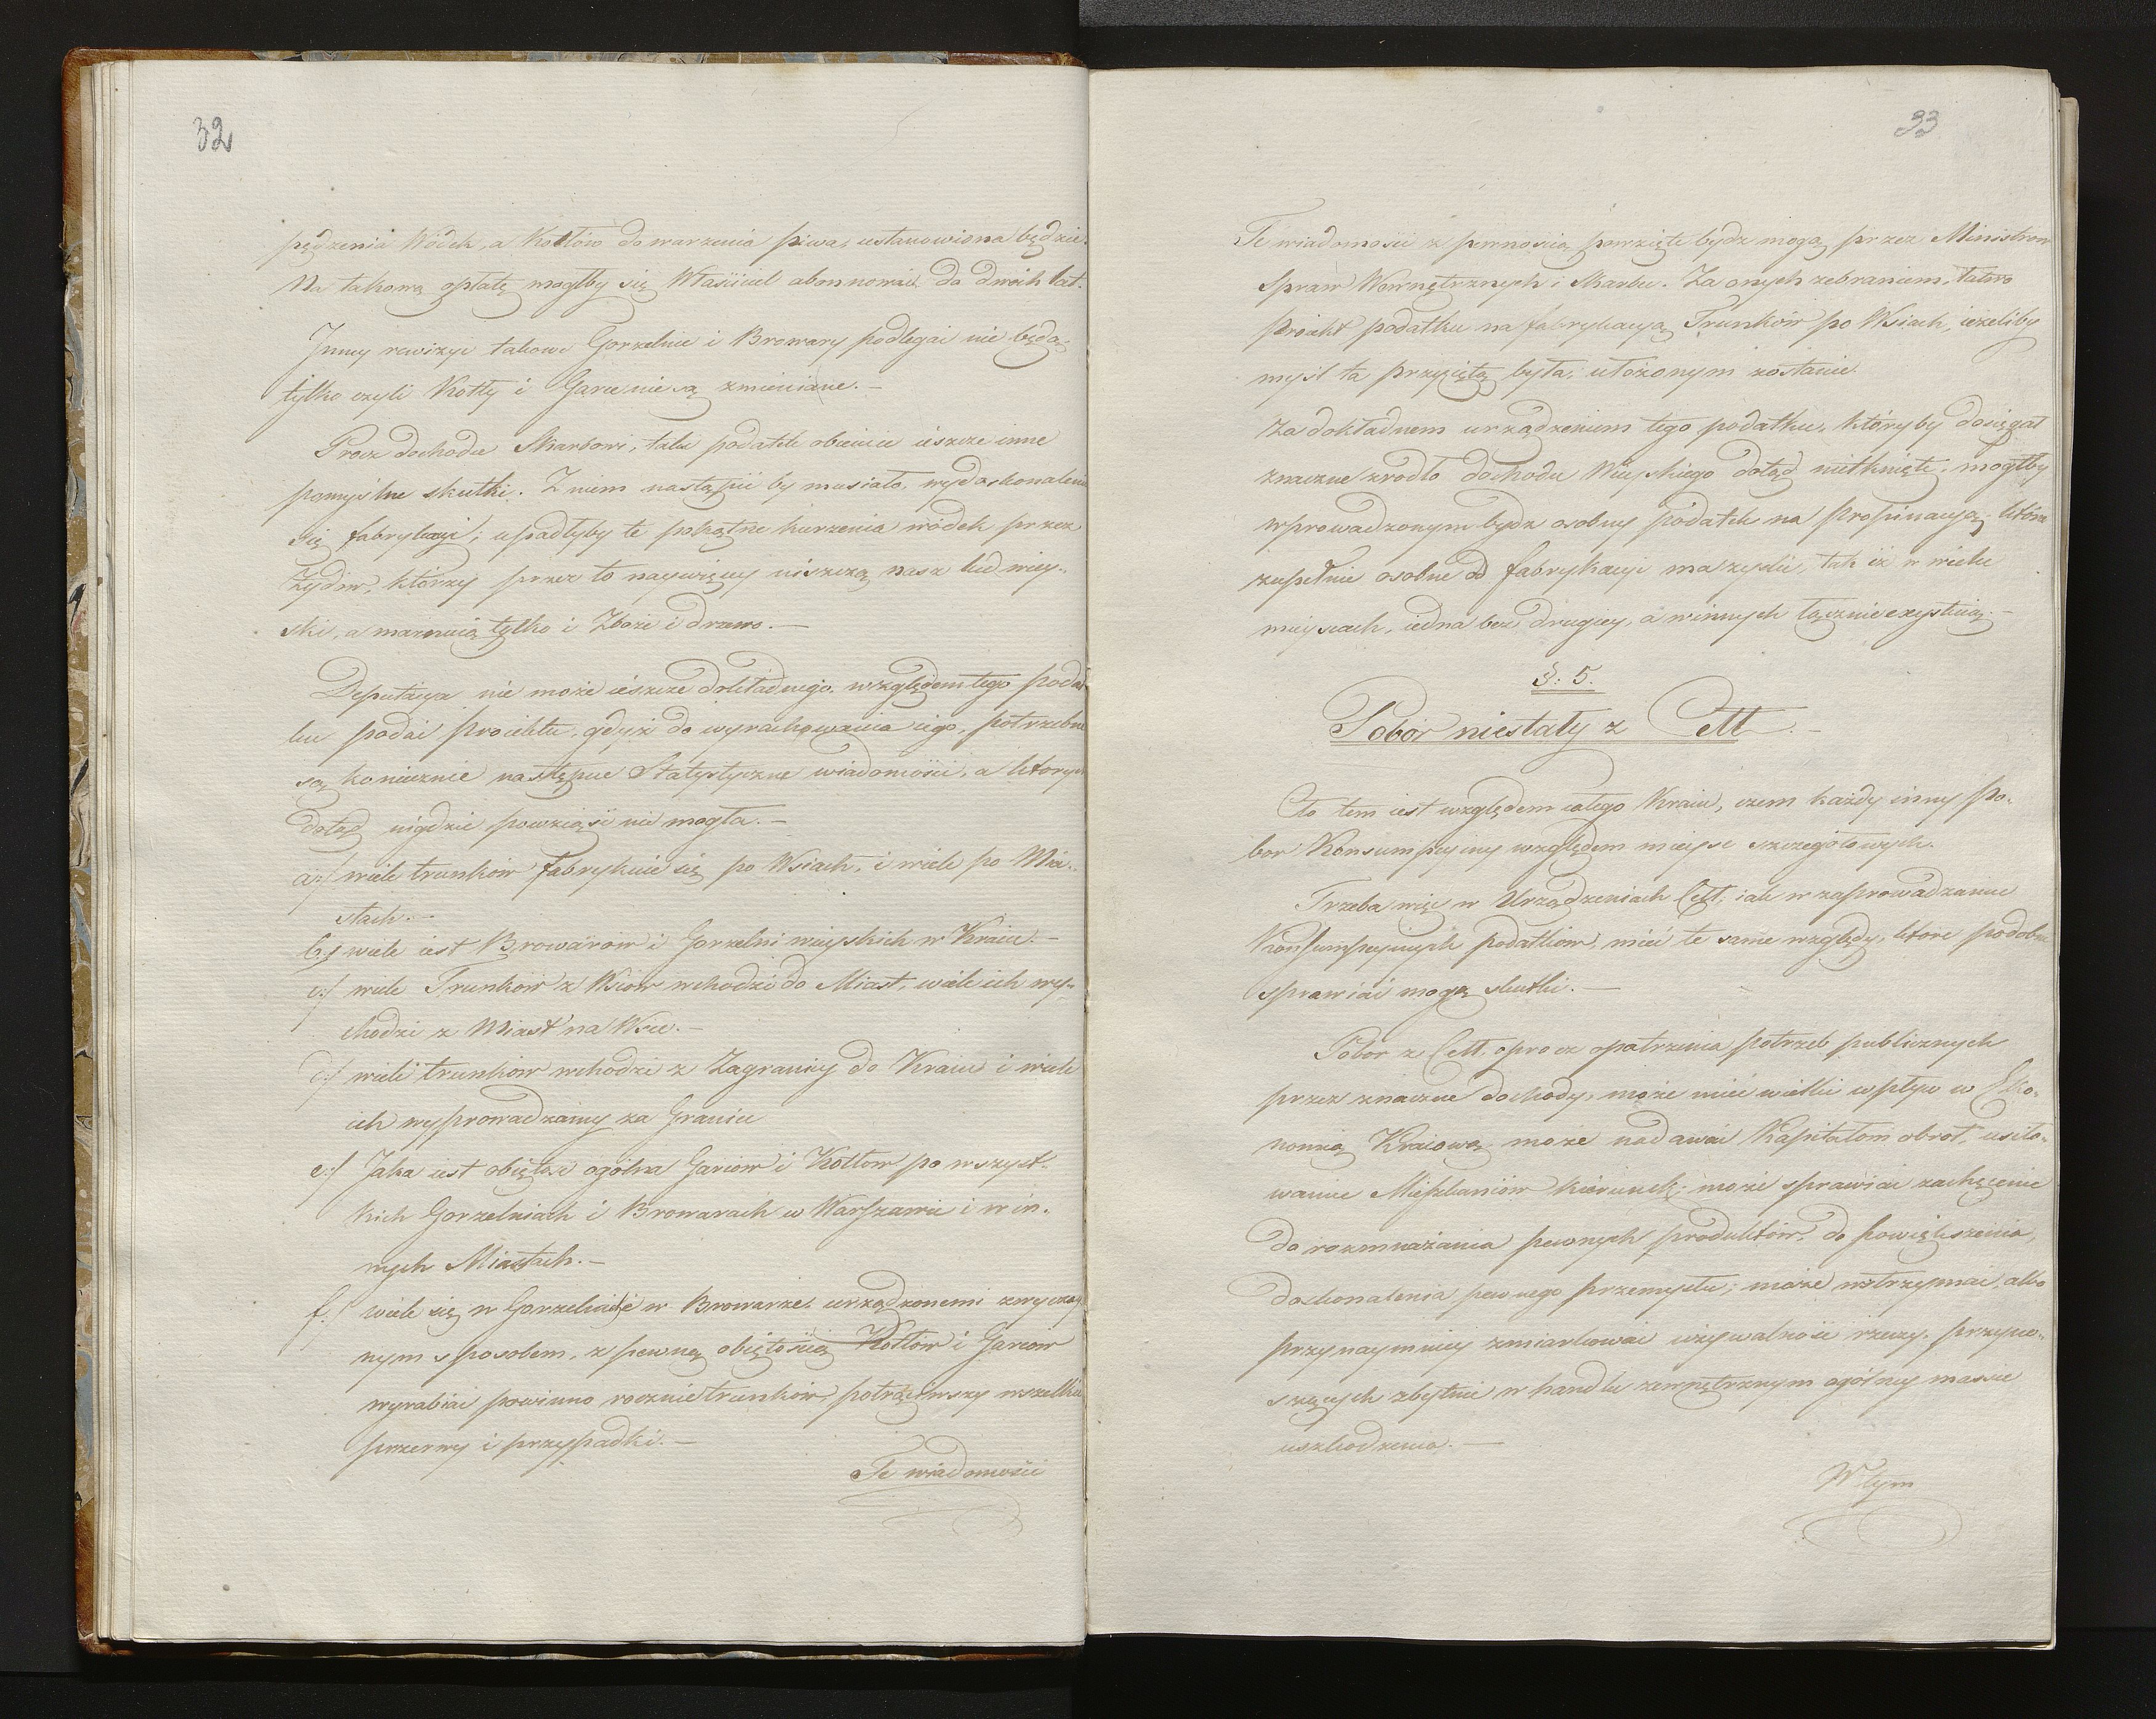 32
pędzenia Wódek, a Kotłów do warzenia piwa, ustanowiona będzie.
Na takową opłatę mogłby się Właściciel abonnować do dwóch lat.
Inney rewizyi takowe Gorzelnie i Browary podlegać nie będą,
tylko czyli Kotły i Garce nie są zmieniane. –
Procz dochodu Skarbowi, taki podatek obiecuie ieszcze inne
pomyślne skutki. Z niem nastąpić by musiało, wydoskonalenie
się fabrykacyi; upadłyby te pokątne kurzenia wódek przez
Żydów, którzy przez to naywięcey niszczą nasz lud wiey-
ski, a marnuią tylko i Zboże i drzewo. –
Deputacya nie może ieszcze dokładnego względem tego podat
ku podać proiektu, gdyż do wyrachowania iego, potrzebne
są koniecznie następne Statystyczne wiadomości, a których
dotąd nigdzie powziąść nie mogła. –
a:/ wiele trunków fabrykuie się po Wsiach, i wiele po Mia-
stach. –
b:/ wiele iest Browarów i Gorzelni wieyskich w Kraiu. –
c:/ wiele Trunków z Wsiow wchodzi do Miast, wiele ich wy-
chodzi z Miast na Wsie. –
d:/ wiele trunków wchodzi z Zagranicy do Kraiu i wiele
ich wyprowadzamy za Granicę
e:/ Jaka iest obiętość ogólna Garców i Kotłow po wszyst-
kich Gorzelniach i Browarach w Warszawie i w in-
nych Miastach. –
f:/ wiele się w Gorzelni i w Browarze, urządzonemi zwyczay
nym sposobem, z pewną obiętością Kotłów i Garców
wyrabiać powinno rocznie trunków, potrąciwszy wszelkie
przerwy i przypadki. –
Te wiadomości
33
Te wiadomości z pewnością powzięte bydz mogą przez Ministrow
Spraw Wewnętrznych i Skarbu. Za onych zebraniem, łatwo
Proiekt podatku na fabrykacyą Trunków po Wsiach, ieżeliby
myśl ta przyięta była, ułożonym zostanie.
Za dokładnem urządzeniem tego podatku, któryby dosięgał
znaczne zrodło dochodu Wieyskiego dotąd nietknięte, mogłby
wprowadzonym bydz osobny podatek na Propinacyą, która
zupełnie osobne od fabrykacyi ma zyski, tak iż w wielu
mieyscach, iedna bez drugiey, a w innych łącznie exystuią. –
§: 5.
Pobór niestały z Cell. –
Cło tem iest względem całego Kraiu, czem każdy inny po-
bor Konsumpcyiny względem mieysc szczegółowych.
Trzeba więc w Urządzeniach Cell, iak w zaprowadzaniu
Konsumpcyinych podatków, mieć te same względy, które podobne
sprawiać mogą skutki. –
Pobor z Cell, oprocz opatrzenia potrzeb publicznych
przez znaczne dochody, może mieć wielki wpływ w Eko-
nomią Kraiową, może nadawać Kapitałom obrot, usiło-
waniu Mieszkańców kierunek; może sprawiać zachęcenie
do rozmnażania pewnych produktów, do powiększenia,
doskonalenia pewnego przemysłu; może wstrzymać, albo
przynaymniey zmiarkować używalność rzeczy, przyno-
szących zbytnie w handlu zewnętrznym ogólney massie
uszkodzenia. –
W tym